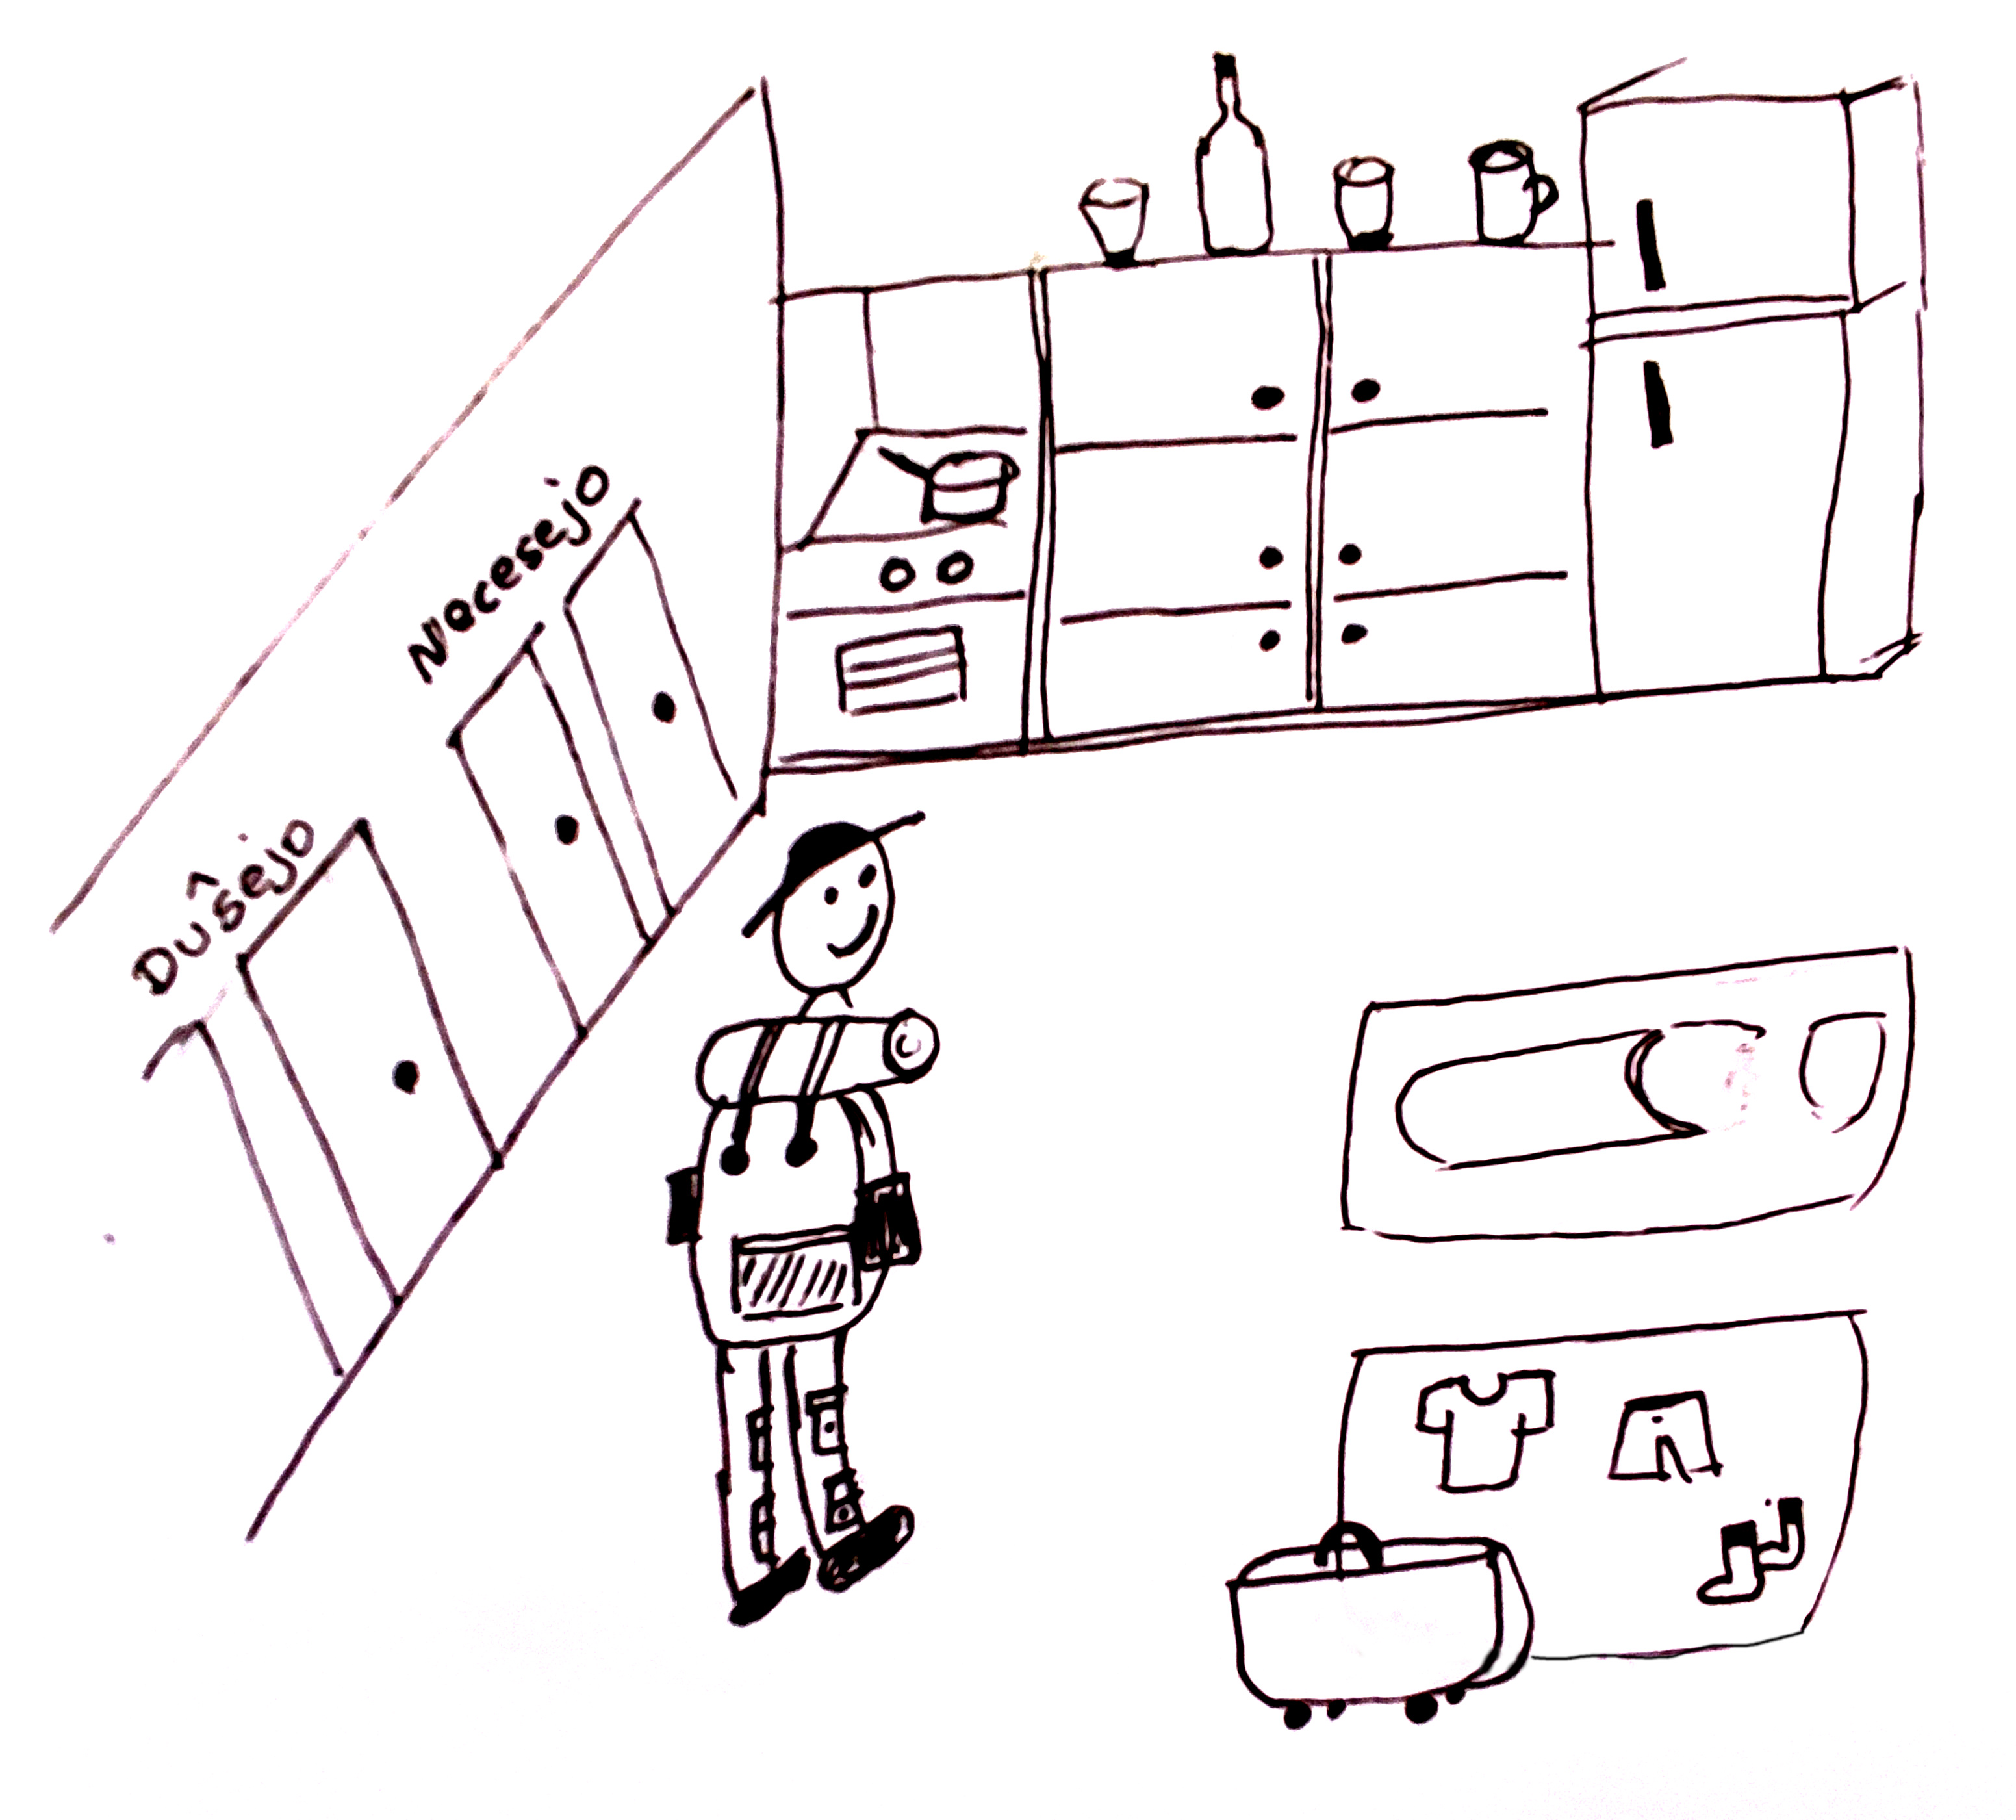 Necesejo
Duŝejo